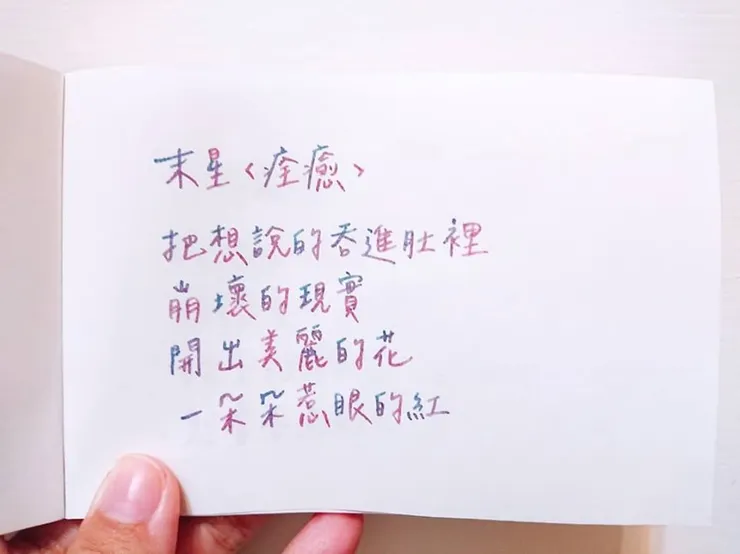 末星〈痊癒〉
把想說的吞進肚裡
崩壞的現實
開出美麗的花
一朵朵惹眼的紅